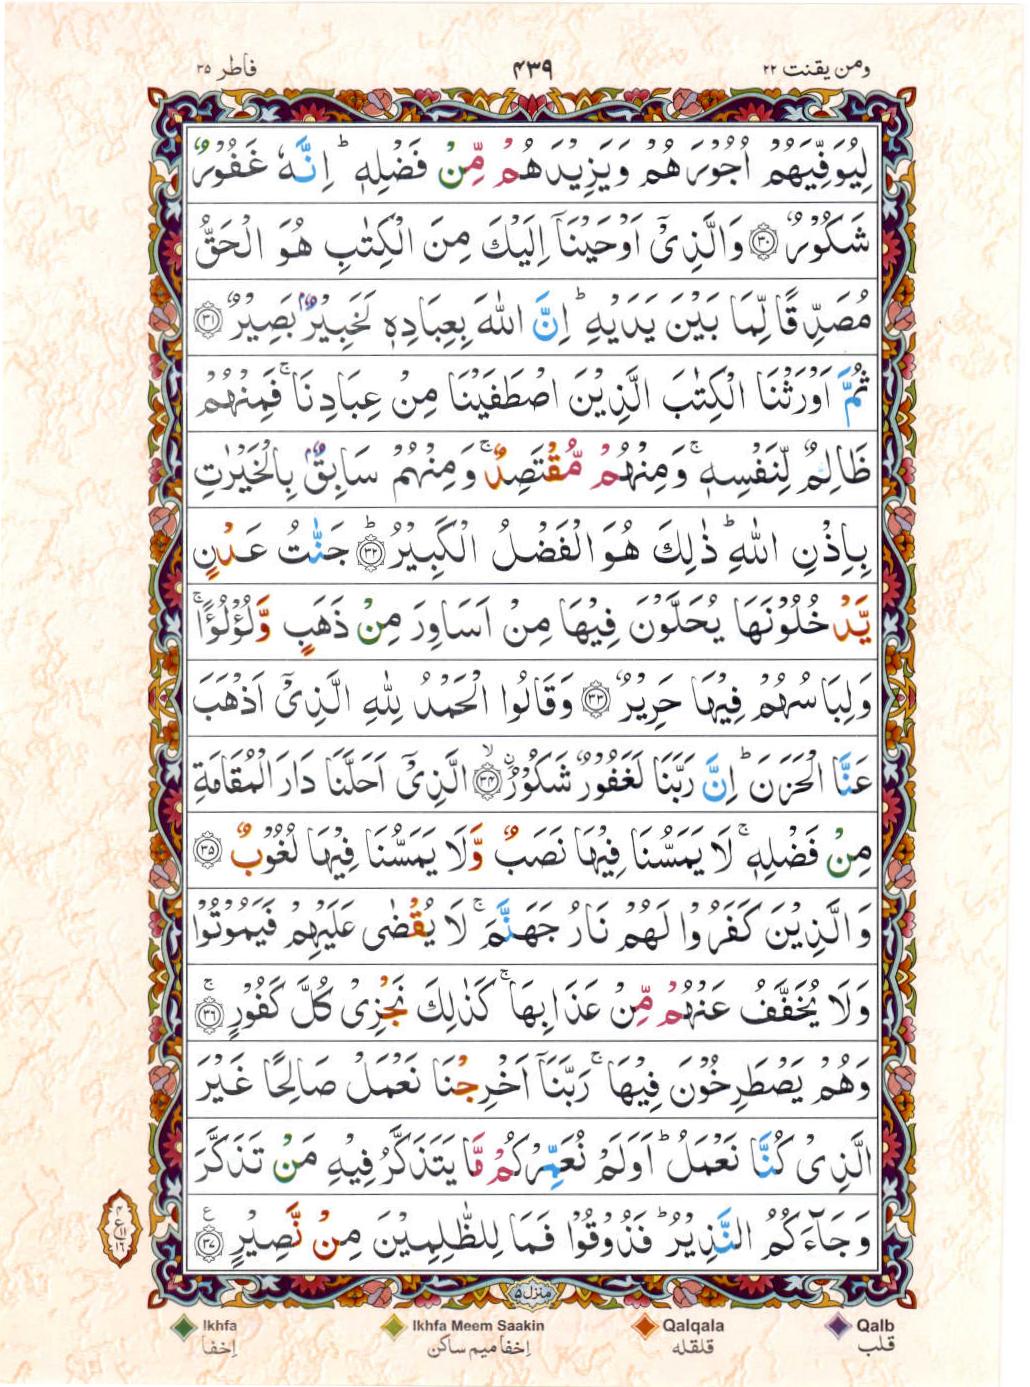 ومن يقنت ٢٢
٤٣٩
فاطر ٣٥
لِيُوَفِّيَهُمْ اُجُوْرَهُمْ وَيَزِيْدَهُمْ مِّنْ فَضْلِهٖ ؕ اِنَّهٗ غَفُوْرٌ
شَكُوْرٌ ﴿٣٠﴾ وَالَّذِيْۤ اَوْحَيْنَاۤ اِلَيْكَ مِنَ الْكِتٰبِ هُوَ الْحَقُّ
مُصَدِّقًا لِّمَا بَيْنَ يَدَيْهِ ؕ اِنَّ اللّٰهَ بِعِبَادِهٖ لَخَبِيْرٌۢ بَصِيْرٌ ﴿٣١﴾
ثُمَّ اَوْرَثْنَا الْكِتٰبَ الَّذِيْنَ اصْطَفَيْنَا مِنْ عِبَادِنَا ۚ فَمِنْهُمْ
ظَالِمٌ لِّنَفْسِهٖ ۚ وَمِنْهُمْ مُّقْتَصِدٌ ۚ وَمِنْهُمْ سَابِقٌۢ بِالْخَيْرٰتِ
بِاِذْنِ اللّٰهِ ؕ ذٰلِكَ هُوَ الْفَضْلُ الْكَبِيْرُ ؕ﴿٣٢﴾ جَنّٰتُ عَدْنٍ
يَّدْخُلُوْنَهَا يُحَلَّوْنَ فِيْهَا مِنْ اَسَاوِرَ مِنْ ذَهَبٍ وَّلُؤْلُؤًا ۚ
وَلِبَاسُهُمْ فِيْهَا حَرِيْرٌ ﴿٣٣﴾ وَقَالُوا الْحَمْدُ لِلّٰهِ الَّذِيْۤ اَذْهَبَ
عَنَّا الْحَزَنَ ؕ اِنَّ رَبَّنَا لَغَفُوْرٌ شَكُوْرُۨ ۙ﴿٣٤﴾ الَّذِيْۤ اَحَلَّنَا دَارَ الْمُقَامَةِ
مِنْ فَضْلِهٖ ۚ لَا يَمَسُّنَا فِيْهَا نَصَبٌ وَّلَا يَمَسُّنَا فِيْهَا لُغُوْبٌ ﴿٣٥﴾
وَالَّذِيْنَ كَفَرُوْا لَهُمْ نَارُ جَهَنَّمَ ۚ لَا يُقْضٰى عَلَيْهِمْ فَيَمُوْتُوْا
وَلَا يُخَفَّفُ عَنْهُمْ مِّنْ عَذَابِهَا ؕ كَذٰلِكَ نَجْزِيْ كُلَّ كَفُوْرٍ ۚ﴿٣٦﴾
وَهُمْ يَصْطَرِخُوْنَ فِيْهَا ۚ رَبَّنَاۤ اَخْرِجْنَا نَعْمَلْ صَالِحًا غَيْرَ
الَّذِيْ كُنَّا نَعْمَلُ ؕ اَوَلَمْ نُعَمِّرْكُمْ مَّا يَتَذَكَّرُ فِيْهِ مَنْ تَذَكَّرَ
وَجَآءَكُمُ النَّذِيْرُ ؕ فَذُوْقُوْا فَمَا لِلظّٰلِمِيْنَ مِنْ نَّصِيْرٍ ﴿٣٧﴾ ع
٤
ع ١١
١٦
منزل ٥
Ikhfa
Ikhfa Meem Saakin
Qalqala
Qalb
اِخفا
اِخفا ميم ساكن
قلقله
قلب